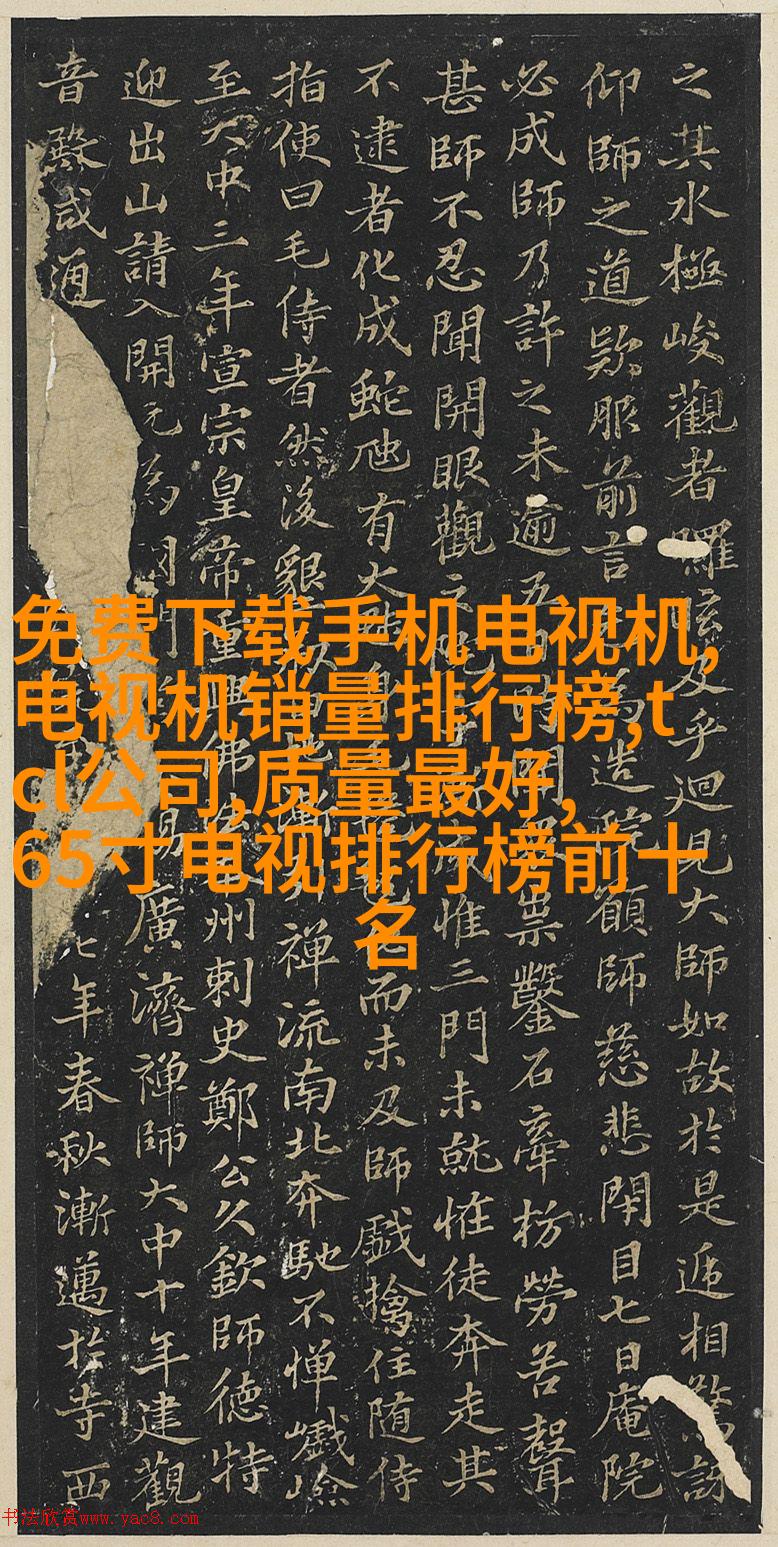 之其水極峻觀者及乎迴見大師如故於是遞相驚訝
仰師之道欵服前言為造院願師慈悲閑目七日庵院
必成師乃許之未逾五日票鑿石牽枋勞苦聲
甚師不忍聞開眼觀之惟三門未就恠徒奔走其
不逮者化成蛇虺有大而未及師戲擒住随侍
指使曰毛侍者然後禪流南北奔馳不憚巇嶮
至大中三年宣宗皇帝重興佛州刺史鄭公久欽師德特
迎出山請入開元為錫廣濟禪師大中十年建觀
音殿咸通七年春秋漸邁於寺西
免费下载手机电视机,
电视机销量排行榜,t
cl公司,质量最好,
65寸电视排行榜前十
名
书法欣赏www.yac8.com